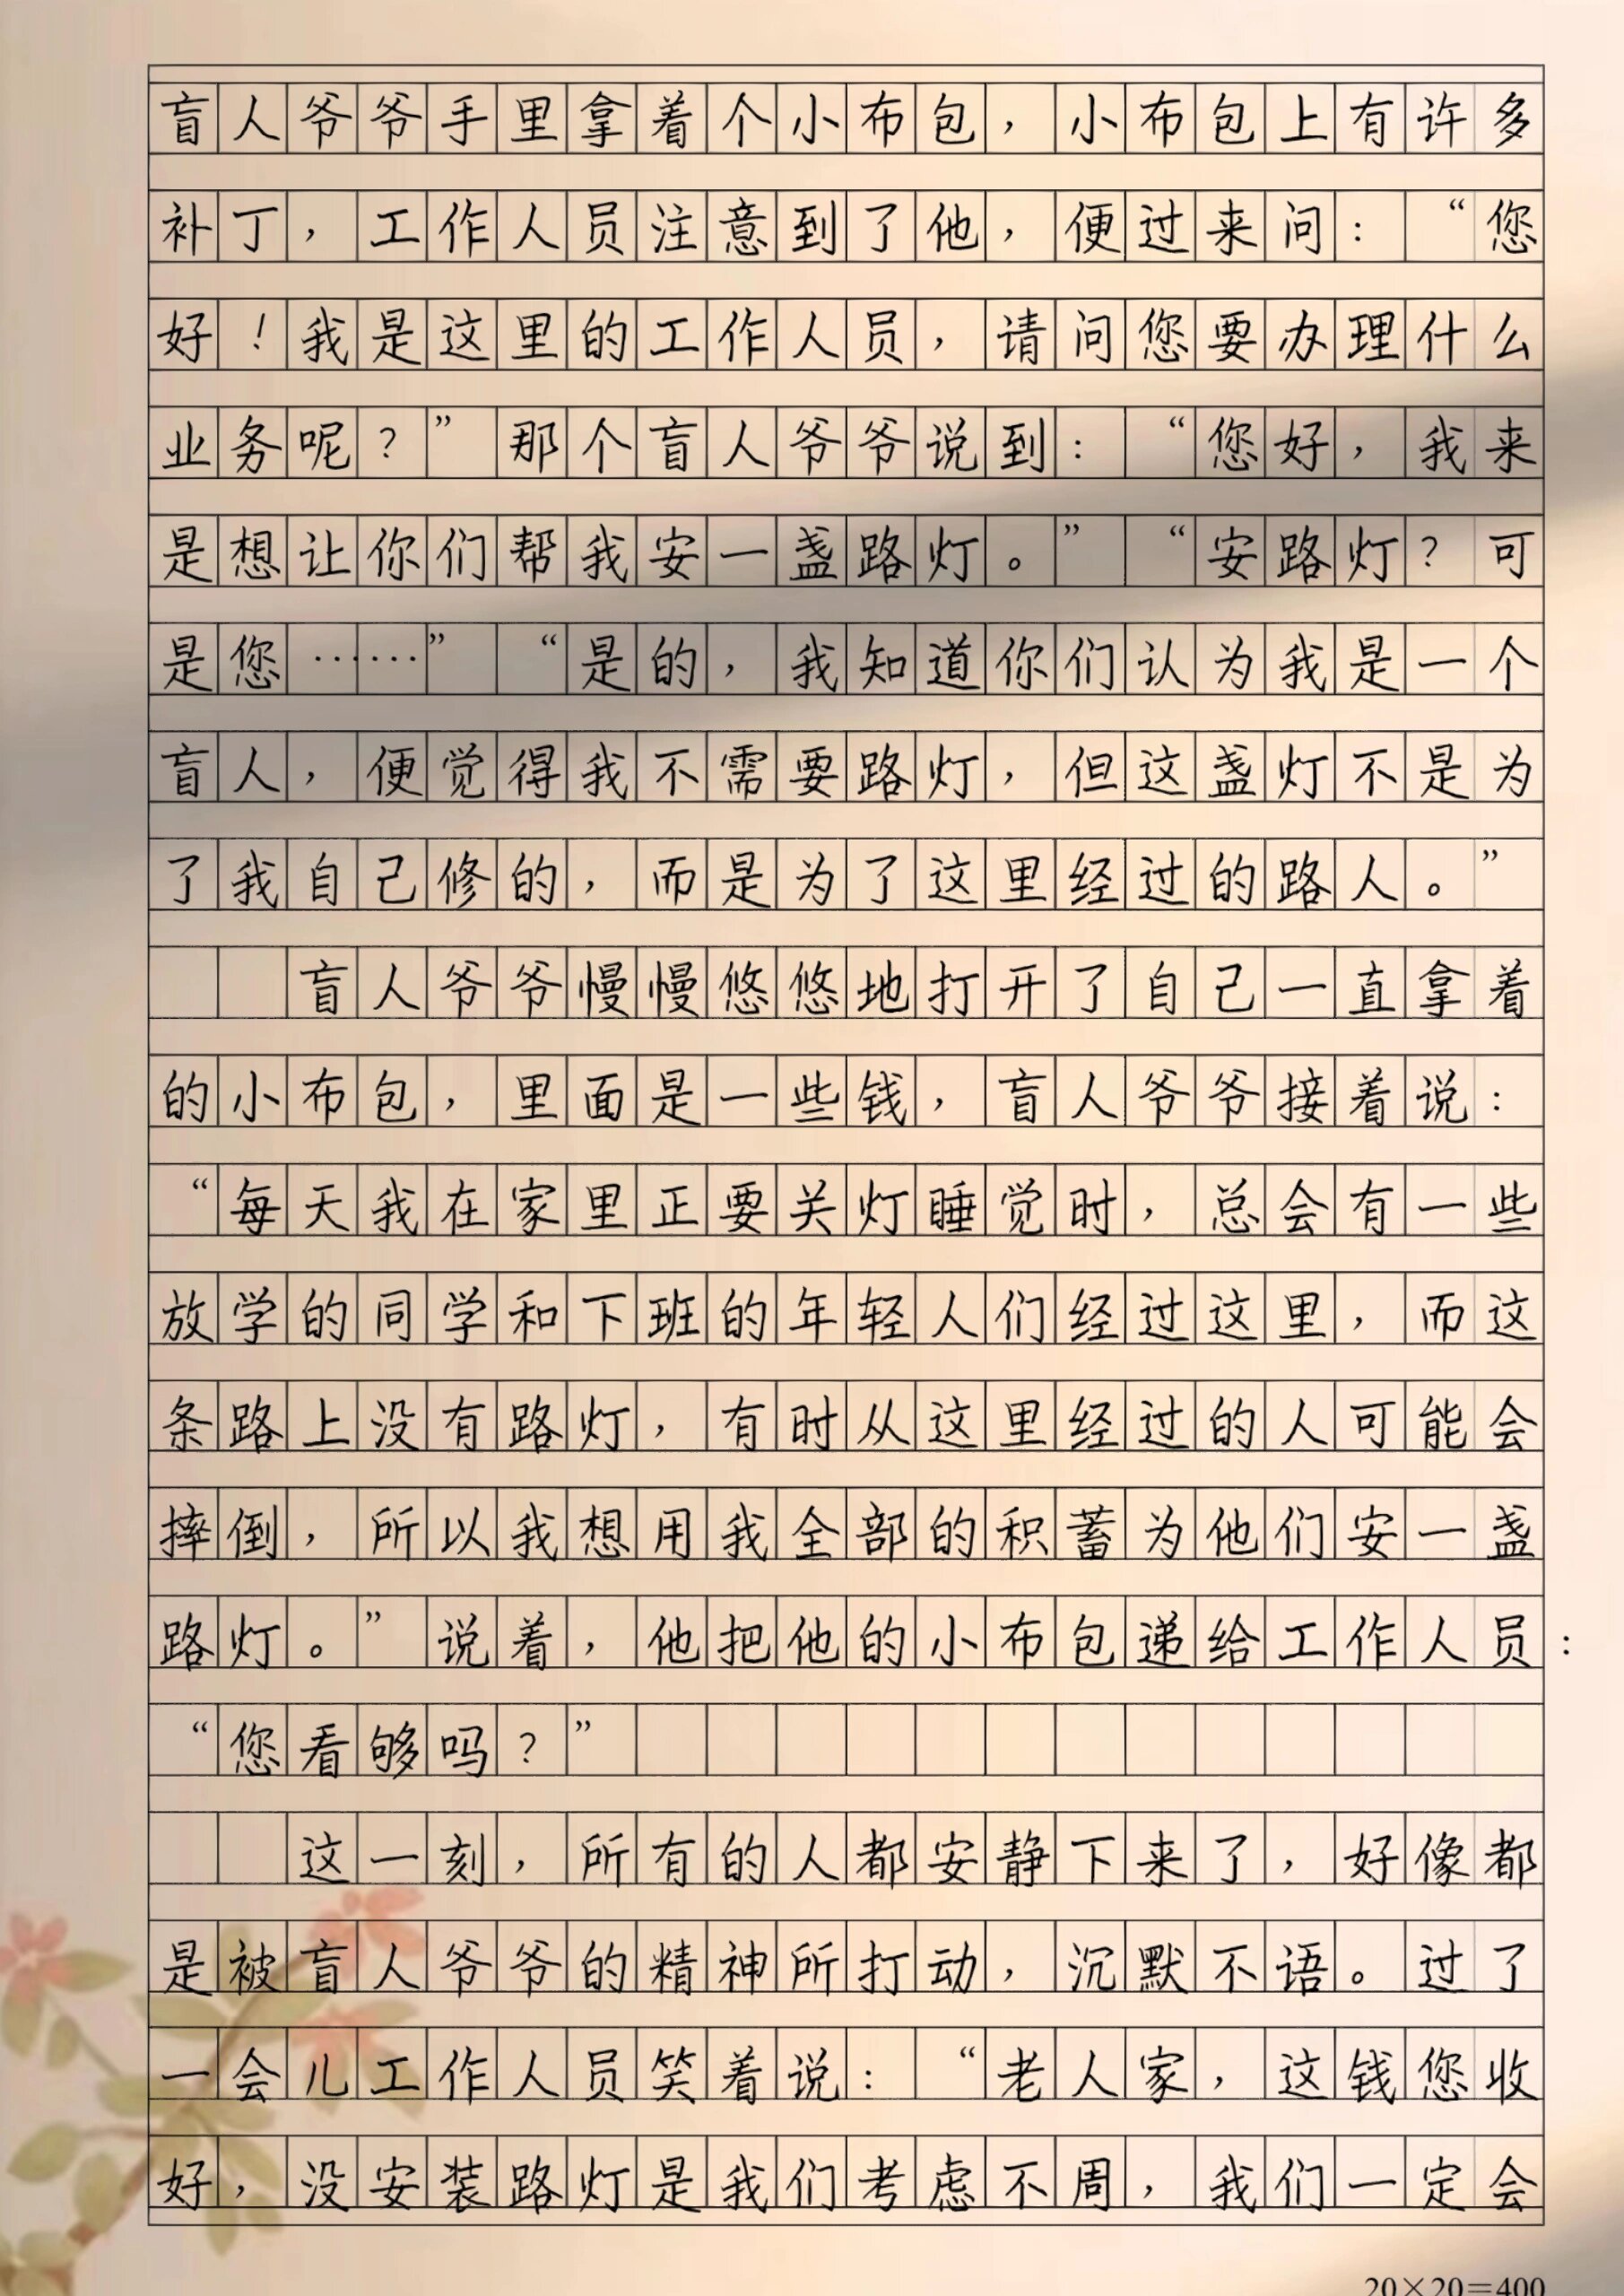 盲人爷爷手里拿着个小布包，小布包上有许多
补丁，工作人员注意到了他，便过来问：“您
好！我是这里的工作人员，请问您要办理什么
业务呢？”那个盲人爷爷说到：“您好，我来
是想让你们帮我安一盏路灯。”“安路灯？可
是您……”“是的，我知道你们认为我是一个
盲人，便觉得我不需要路灯，但这盏灯不是为
了我自己修的，而是为了这里经过的路人。”
盲人爷爷慢慢悠悠地打开了自己一直拿着
的小布包，里面是一些钱，盲人爷爷接着说：
“每天我在家里正要关灯睡觉时，总会有一些
放学的同学和下班的年轻人们经过这里，而这
条路上没有路灯，有时从这里经过的人可能会
摔倒，所以我想用我全部的积蓄为他们安一盏
路灯。”说着，他把他的小布包递给工作人员：
“您看够吗？”
这一刻，所有的人都安静下来了，好像都
是被盲人爷爷的精神所打动，沉默不语。过了
一会儿工作人员笑着说：“老人家，这钱您收
好，没安装路灯是我们考虑不周，我们一定会
20×20=400